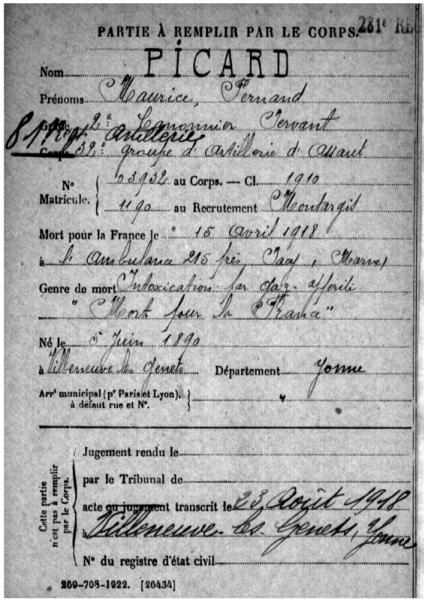 PARTIE À REMPLIR PAR LE CORPS. 281e RÉG
Nom PICARD
Prénoms Maurice, Fernand
Grade 2e Canonnier Servant
81e Regt Artillerie
Corps 32e groupe d'Artillerie d'Assaut
No Matricule. 03932 au Corps. — Cl. 1910
1190 au Recrutement Montargis
Mort pour la France le 15 avril 1918
à l'ambulance 215 près (Marne)
Genre de mort Intoxication par gaz
"Mort pour la France"
Né le 5 Juin 1890
à Villeneuve les Genets Département Yonne
Arrt municipal (pr Paris et Lyon),
à défaut rue et No.
"
Cette partie n'est pas à remplir par le Corps.
Jugement rendu le
par le Tribunal de
acte ou jugement transcrit le 23 Août 1918
à Villeneuve-les Genets, Yonne
No du registre d'état civil
269-708-1922. [26434]